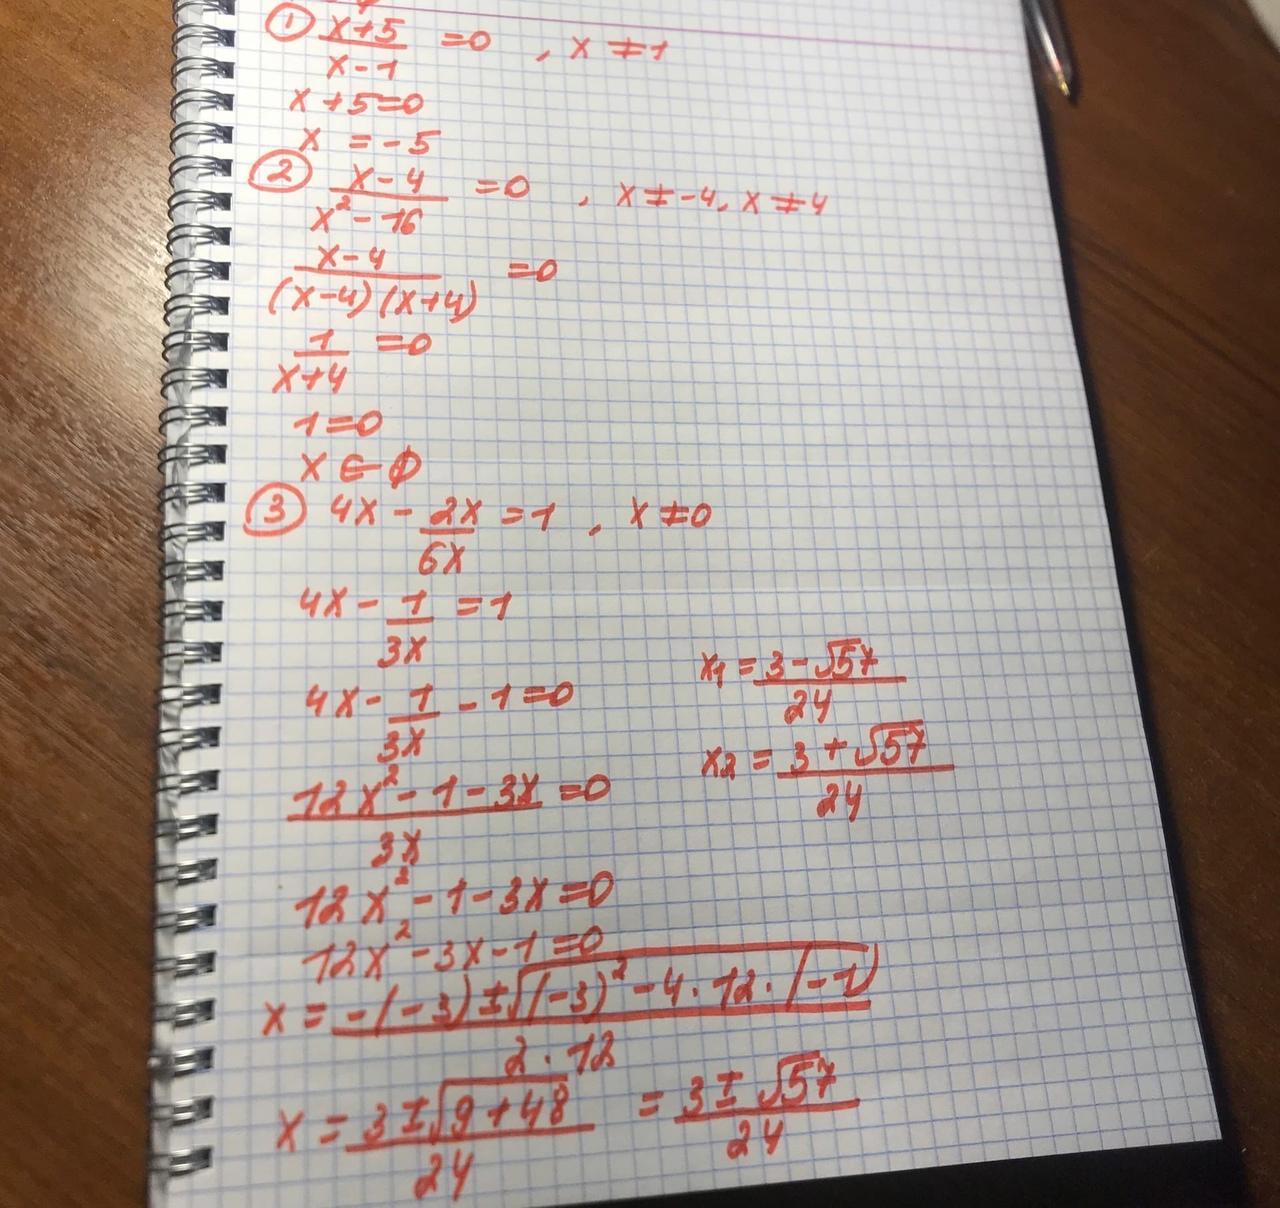 ① x+5/x-1 =0 , x ≠1
x+5=0
x = -5
② x-4/x²-16 =0 , x≠-4, x≠4
x-4/(x-4)(x+4) =0
1/x+4 =0
1=0
x ∈ ∅
③ 4x - 2x/6x =1 , x≠0
4x - 1/3x =1
4x - 1/3x -1=0
12x²-1-3x/3x =0
12x²-1-3x=0
12x²-3x-1=0
x = -(-3)±√(-3)²-4·12·(-1)/2·12
x = 3±√9+48/24 = 3±√57/24
x1 = 3-√57/24
x2 = 3+√57/24